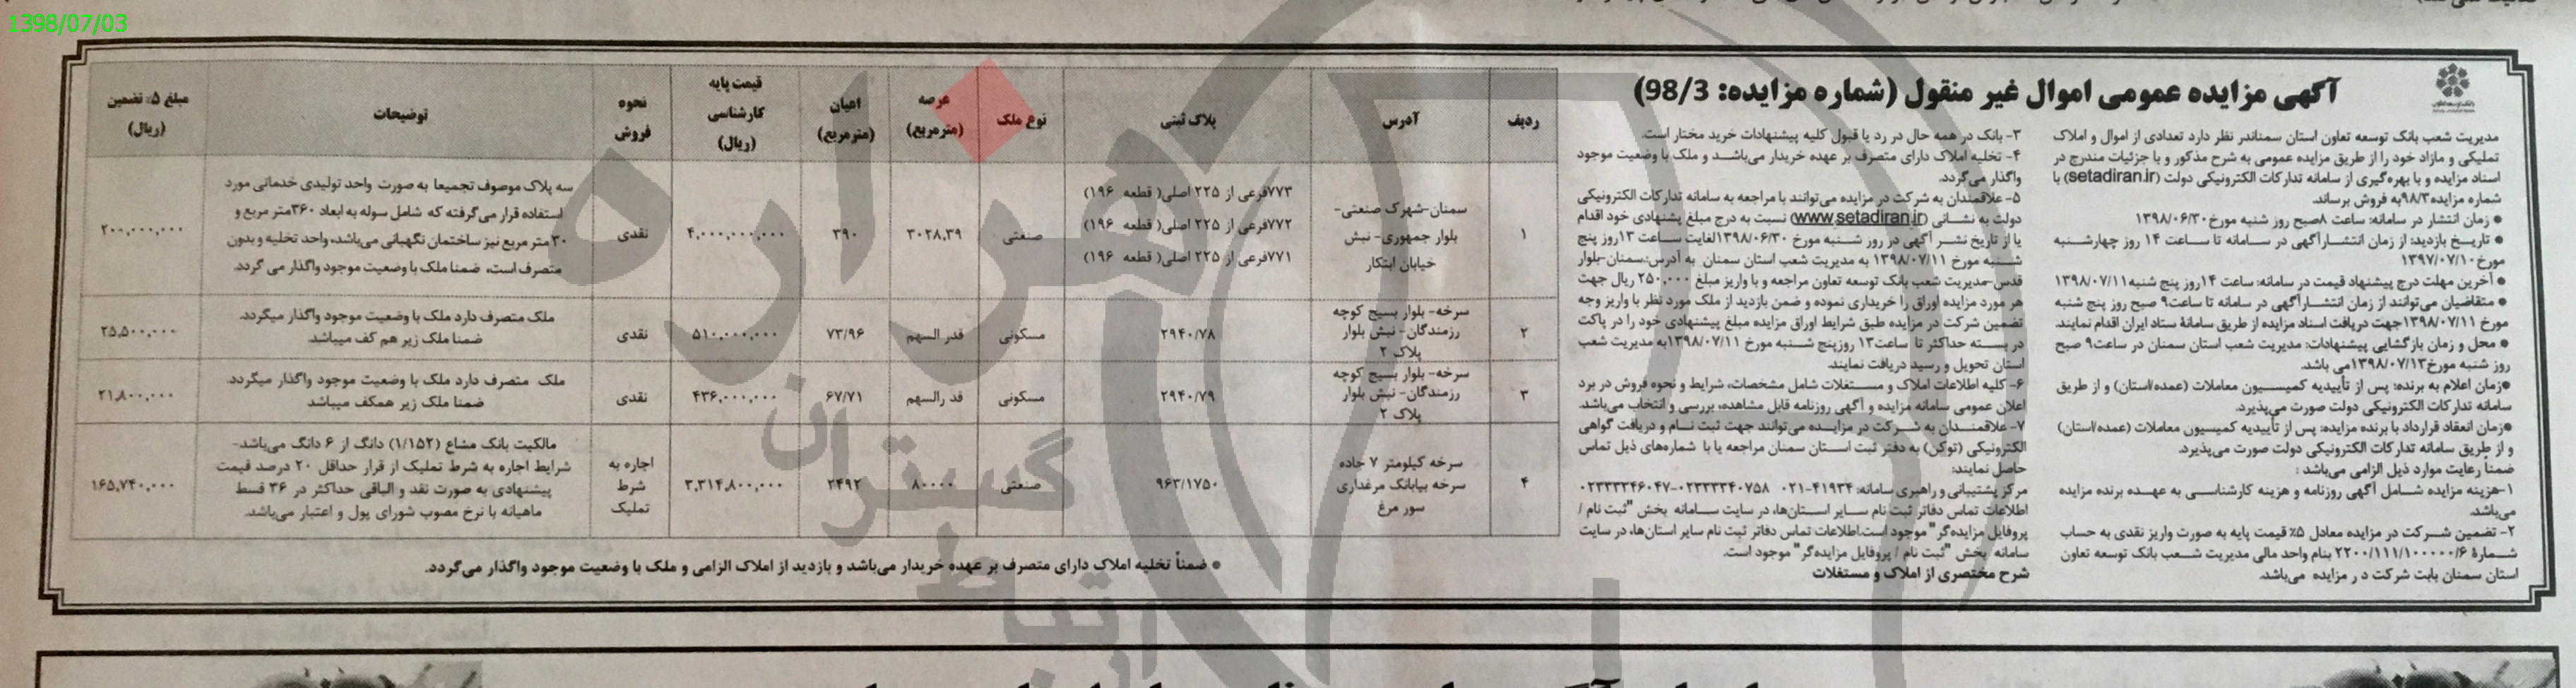 1398/07/03
آگهی مزایده عمومی اموال غیر منقول (شماره مزایده: 98/3)
مدیریت شعب بانک توسعه تعاون استان سمناندر نظر دارد تعدادی از اموال و املاک
تملیکی و مازاد خود را از طریق مزایده عمومی به شرح مذکور و با جزئیات مندرج در
اسناد مزایده و با بهره‌گیری از سامانه تدارکات الکترونیکی دولت (setadiran.ir) با
شماره مزایده۹۸/۳به فروش برساند.
• زمان انتشار در سامانه: ساعت ۸صبح روز شنبه مورخ۱۳۹۸/۰۶/۳۰
• تاریخ بازدید: از زمان انتشارآگهی در سامانه تا ساعت ۱۴ روز چهارشنبه
مورخ۱۳۹۷/۰۷/۱۰
• آخرین مهلت درج پیشنهاد قیمت در سامانه: ساعت ۱۴روز پنج شنبه۱۳۹۸/۰۷/۱۱
• متقاضیان می‌توانند از زمان انتشارآگهی در سامانه تا ساعت۹ صبح روز پنج شنبه
مورخ ۱۳۹۸/۰۷/۱۱جهت دریافت اسناد مزایده از طریق سامانهٔ ستاد ایران اقدام نمایند.
• محل و زمان بازگشایی پیشنهادات: مدیریت شعب استان سمنان در ساعت۹ صبح
روز شنبه مورخ۱۳۹۸/۰۷/۱۳می باشد.
•زمان اعلام به برنده: پس از تأییدیه کمیسیون معاملات (عمده/استان) و از طریق
سامانه تدارکات الکترونیکی دولت صورت می‌پذیرد.
•زمان انعقاد قرارداد با برنده مزایده: پس از تأییدیه کمیسیون معاملات (عمده/استان)
و از طریق سامانه تدارکات الکترونیکی دولت صورت می‌پذیرد.
ضمناً رعایت موارد ذیل الزامی می‌باشد :
۱-هزینه مزایده شامل آگهی روزنامه و هزینه کارشناسی به عهده برنده مزایده
می‌باشد.
۲- تضمین شرکت در مزایده معادل ۵٪ قیمت پایه به صورت واریز نقدی به حساب
شمارهٔ ۲۲۰۰/۱۱۱/۱۰۰۰۰۰/۶ بنام واحد مالی مدیریت شعب بانک توسعه تعاون
استان سمنان بابت شرکت در مزایده می‌باشد.
۳- بانک در همه حال در رد یا قبول کلیه پیشنهادات خرید مختار است.
۴- تخلیه املاک دارای متصرف بر عهده خریدار می‌باشد و ملک با وضعیت موجود
واگذار می‌گردد.
۵- علاقمندان به شرکت در مزایده می‌توانند با مراجعه به سامانه تدارکات الکترونیکی
دولت به نشانی (www.setadiran.ir) نسبت به درج مبلغ پشنهادی خود اقدام
یا از تاریخ نشر آگهی در روز شنبه مورخ ۱۳۹۸/۰۶/۳۰لغایت ساعت ۱۳روز پنج
شنبه مورخ ۱۳۹۸/۰۷/۱۱ به مدیریت شعب استان سمنان به آدرس:سمنان-بلوار
قدس-مدیریت شعب بانک توسعه تعاون مراجعه و با واریز مبلغ ۲۵۰,۰۰۰ ریال جهت
هر مورد مزایده اوراق را خریداری نموده و ضمن بازدید از ملک مورد نظر با واریز وجه
تضمین شرکت در مزایده طبق شرایط اوراق مزایده مبلغ پیشنهادی خود را در پاکت
در بسته حداکثر تا ساعت۱۳ روزپنج شنبه مورخ ۱۳۹۸/۰۷/۱۱به مدیریت شعب
استان تحویل و رسید دریافت نمایند.
۶- کلیه اطلاعات املاک و مستغلات شامل مشخصات، شرایط و نحوه فروش در برد
اعلان عمومی سامانه مزایده و آگهی روزنامه قابل مشاهده، بررسی و انتخاب می‌باشد.
۷- علاقمندان به شرکت در مزایده می‌توانند جهت ثبت نام و دریافت گواهی
الکترونیکی (توکن) به دفتر ثبت استان سمنان مراجعه یا با شماره‌های ذیل تماس
حاصل نمایند:
مرکز پشتیبانی و راهبری سامانه: ۴۱۹۳۴-۰۲۱ ۰۲۳۳۳۳۴۰۷۵۸-۰۲۳۳۳۳۴۶۰۴۷
اطلاعات تماس دفاتر ثبت نام سایر استان‌ها، در سایت سامانه بخش "ثبت نام /
پروفایل مزایده‌گر" موجود است.اطلاعات تماس دفاتر ثبت نام سایر استان‌ها، در سایت
سامانه بخش "ثبت نام / پروفایل مزایده‌گر" موجود است.
شرح مختصری از املاک و مستغلات
ردیف آدرس پلاک ثبتی نوع ملک عرصه (مترمربع) اعیان (مترمربع) قیمت پایه کارشناسی (ریال) نحوه فروش توضیحات مبلغ ۵٪ تضمین (ریال)
۱ سمنان-شهرک صنعتی- بلوار جمهوری- نبش خیابان ابتکار
۷۷۳فرعی از ۲۲۵ اصلی( قطعه ۱۹۶)
۷۷۲فرعی از ۲۲۵ اصلی( قطعه ۱۹۶)
۷۷۱فرعی از ۲۲۵ اصلی( قطعه ۱۹۶)
صنعتی ۳۰۲۸,۳۹ ۳۹۰ ۴,۰۰۰,۰۰۰,۰۰۰ نقدی
سه پلاک موصوف تجمیعا به صورت واحد تولیدی خدماتی مورد
استفاده قرار می‌گرفته که شامل سوله به ابعاد ۳۶۰متر مربع و
۳۰ متر مربع نیز ساختمان نگهبانی می‌باشد، واحد تخلیه و بدون
متصرف است، ضمنا ملک با وضعیت موجود واگذار می گردد.
۲۰۰,۰۰۰,۰۰۰
۲ سرخه- بلوار بسیج کوچه رزمندگان- نبش بلوار پلاک ۲ ۲۹۴۰/۷۸ مسکونی قدر السهم ۷۳/۹۶ ۵۱۰,۰۰۰,۰۰۰ نقدی
ملک متصرف دارد ملک با وضعیت موجود واگذار میگردد.
ضمنا ملک زیر هم کف میباشد
۲۵,۵۰۰,۰۰۰
۳ سرخه- بلوار بسیج کوچه رزمندگان- نبش بلوار پلاک ۲ ۲۹۴۰/۷۹ مسکونی قد رالسهم ۶۷/۷۱ ۴۳۶,۰۰۰,۰۰۰ نقدی
ملک متصرف دارد ملک با وضعیت موجود واگذار میگردد.
ضمنا ملک زیر همکف میباشد
۲۱,۸۰۰,۰۰۰
۴ سرخه کیلومتر ۷ جاده سرخه بیابانک مرغداری سور مرغ ۹۶۳/۱۷۵۰ صنعتی ۸۰۰۰۰ ۲۴۹۲ ۳,۳۱۴,۸۰۰,۰۰۰ اجاره به شرط تملیک
مالکیت بانک مشاع (۱/۱۵۲) دانگ از ۶ دانگ می‌باشد-
شرایط اجاره به شرط تملیک از قرار حداقل ۲۰ درصد قیمت
پیشنهادی به صورت نقد و الباقی حداکثر در ۳۶ قسط
ماهیانه با نرخ مصوب شورای پول و اعتبار می‌باشد.
۱۶۵,۷۴۰,۰۰۰
• ضمناً تخلیه املاک دارای متصرف بر عهده خریدار می‌باشد و بازدید از املاک الزامی و ملک با وضعیت موجود واگذار می‌گردد.
هزاره
گستران
ارتباط